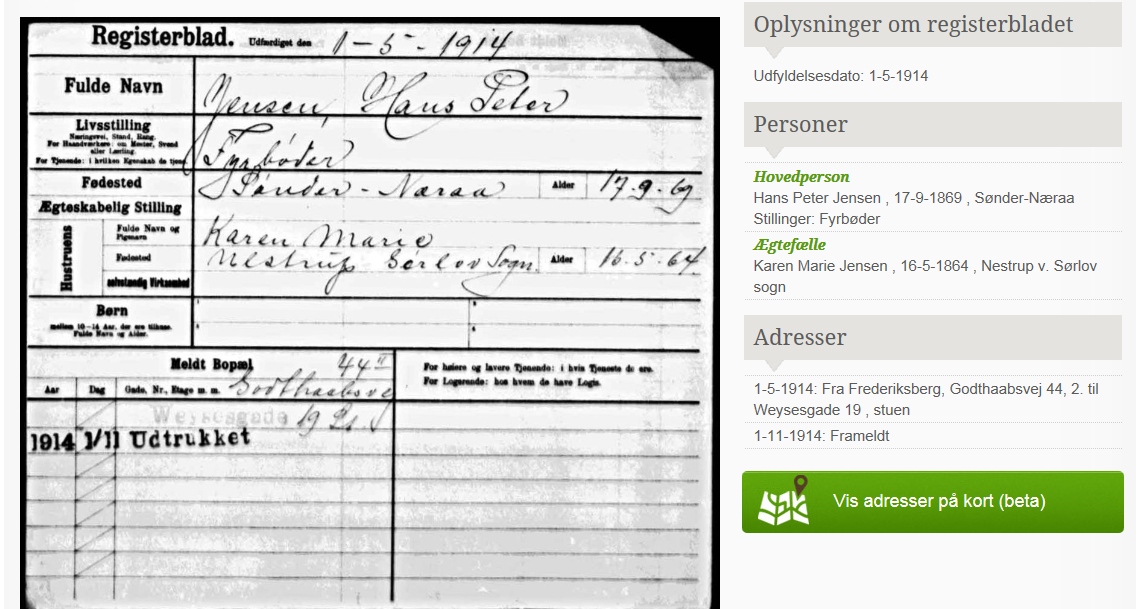 Registerblad. Udfærdiget den 1-5-1914
Fulde Navn Jensen, Hans Peter
Livsstilling
Næringsvej, Stand, Rang.
For Haandværkere: om Mester, Svend
eller Lærling.
For Tjenende: i hvilken Egenskab de tjene
Fyrbøder
Fødested Sønder-Næraa Alder 17-9-69
Ægteskabelig Stilling
Hustruens
Fulde Navn og
Pigenavn
Karen Marie
Fødested Nestrup Sørlov Sogn. Alder 16-5-64
selvstændig Virksomhed
Børn
mellem 10-14 Aar, der ere tilhuse.
Fulde Navn og Alder.
Meldt Bopæl 44 II
Aar Dag Gade, Nr., Etage m. m. Godthaabsve
For højere og lavere Tjenende: i hvis Tjeneste de ere.
For Logerende: hos hvem de have Logis.
Weysesgade 19 St.
1914 1/11 Udtrukket
Oplysninger om registerbladet
Udfyldelsesdato: 1-5-1914
Personer
Hovedperson
Hans Peter Jensen , 17-9-1869 , Sønder-Næraa
Stillinger: Fyrbøder
Ægtefælle
Karen Marie Jensen , 16-5-1864 , Nestrup v. Sørlov
sogn
Adresser
1-5-1914: Fra Frederiksberg, Godthaabsvej 44, 2. til
Weysesgade 19 , stuen
1-11-1914: Frameldt
Vis adresser på kort (beta)